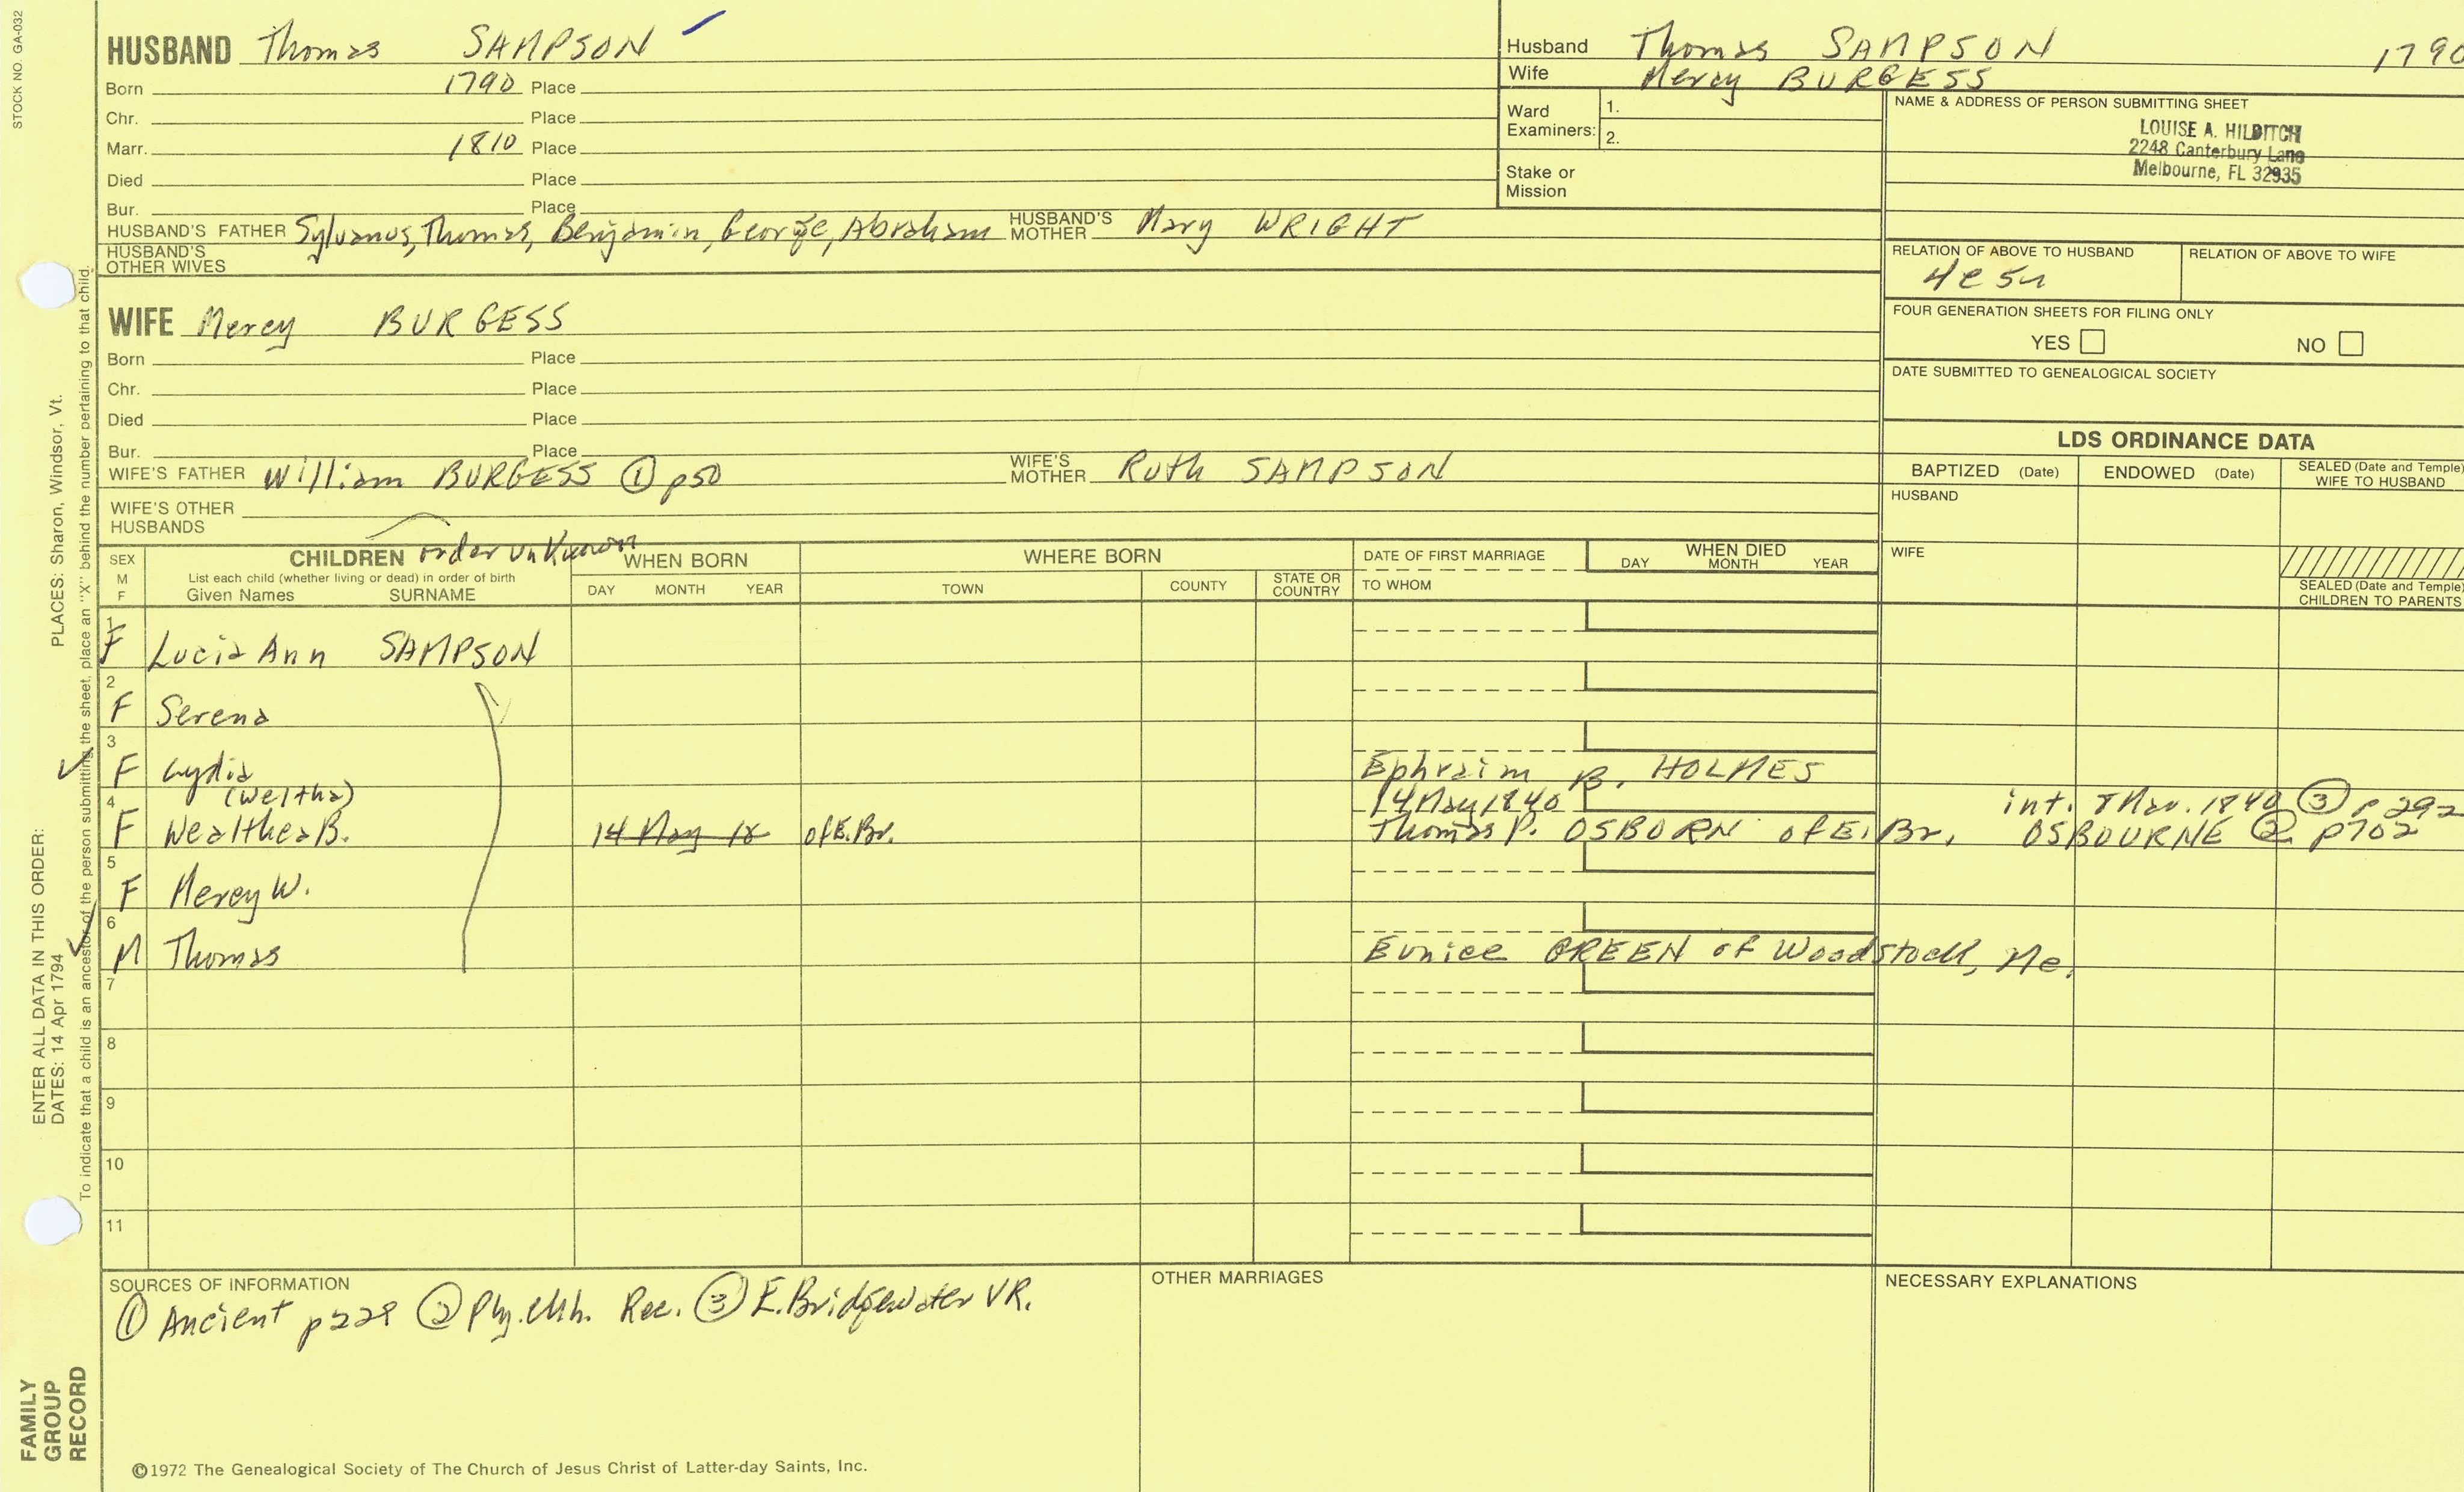 STOCK NO. GA-032
HUSBAND Thomas SAMPSON
Born 1790 Place
Chr. Place
Marr. 1810 Place
Died Place
Bur. Place
HUSBAND'S FATHER Sylvanus, Thomas, Benjamin, George, Abraham HUSBAND'S MOTHER Mary WRIGHT
HUSBAND'S OTHER WIVES
Husband Thomas SAMPSON 1790
Wife Mercy BURGESS
Ward Examiners: 1.
2.
Stake or Mission
NAME & ADDRESS OF PERSON SUBMITTING SHEET
LOUISE A. HILDITCH
2248 Canterbury Lane
Melbourne, FL 32935
RELATION OF ABOVE TO HUSBAND RELATION OF ABOVE TO WIFE
FOUR GENERATION SHEETS FOR FILING ONLY
YES NO
DATE SUBMITTED TO GENEALOGICAL SOCIETY
WIFE Mercy BURGESS
Born Place
Chr. Place
Died Place
Bur. Place
WIFE'S FATHER William BURGESS ① p50 WIFE'S MOTHER Ruth SAMPSON
WIFE'S OTHER HUSBANDS
LDS ORDINANCE DATA
BAPTIZED (Date) ENDOWED (Date) SEALED (Date and Temple) WIFE TO HUSBAND
HUSBAND
WIFE
SEALED (Date and Temple) CHILDREN TO PARENTS
SEX M F
CHILDREN order unknown
List each child (whether living or dead) in order of birth
Given Names SURNAME
WHEN BORN
DAY MONTH YEAR
WHERE BORN
TOWN COUNTY STATE OR COUNTRY
DATE OF FIRST MARRIAGE
TO WHOM
WHEN DIED
DAY MONTH YEAR
1 F Lucia Ann SAMPSON
2 F Serena
3 F Lydia Ephraim B. HOLMES
(Weltha) 14 May 1840 int. 8 Mar. 1840 ③ p292
4 F Wealthea B. 14 May 18 of E. Br. Thomas P. OSBORN of E. Br. OSBOURNE ② p702
5 F Mercy W.
6 M Thomas Eunice GREEN of Woodstock, Me.
7
8
9
10
11
SOURCES OF INFORMATION
① Ancient p229 ② Ply. Chh. Rec. ③ E. Bridgewater VR.
OTHER MARRIAGES
NECESSARY EXPLANATIONS
©1972 The Genealogical Society of The Church of Jesus Christ of Latter-day Saints, Inc.
FAMILY
GROUP
RECORD
ENTER ALL DATA IN THIS ORDER:
DATES: 14 Apr 1794
PLACES: Sharon, Windsor, Vt.
To indicate that a child is an ancestor of the person submitting the sheet, place an "X" behind the number pertaining to that child.